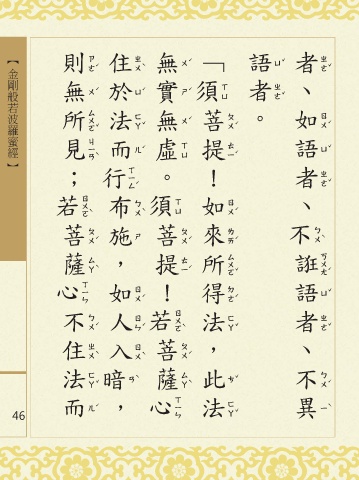 者、如語者、不誑語者、不異
語者。
「須菩提！如來所得法，此法
無實無虛。須菩提！若菩薩心
住於法而行布施，如人入暗，
則無所見；若菩薩心不住法而
【金剛般若波羅蜜經】
46